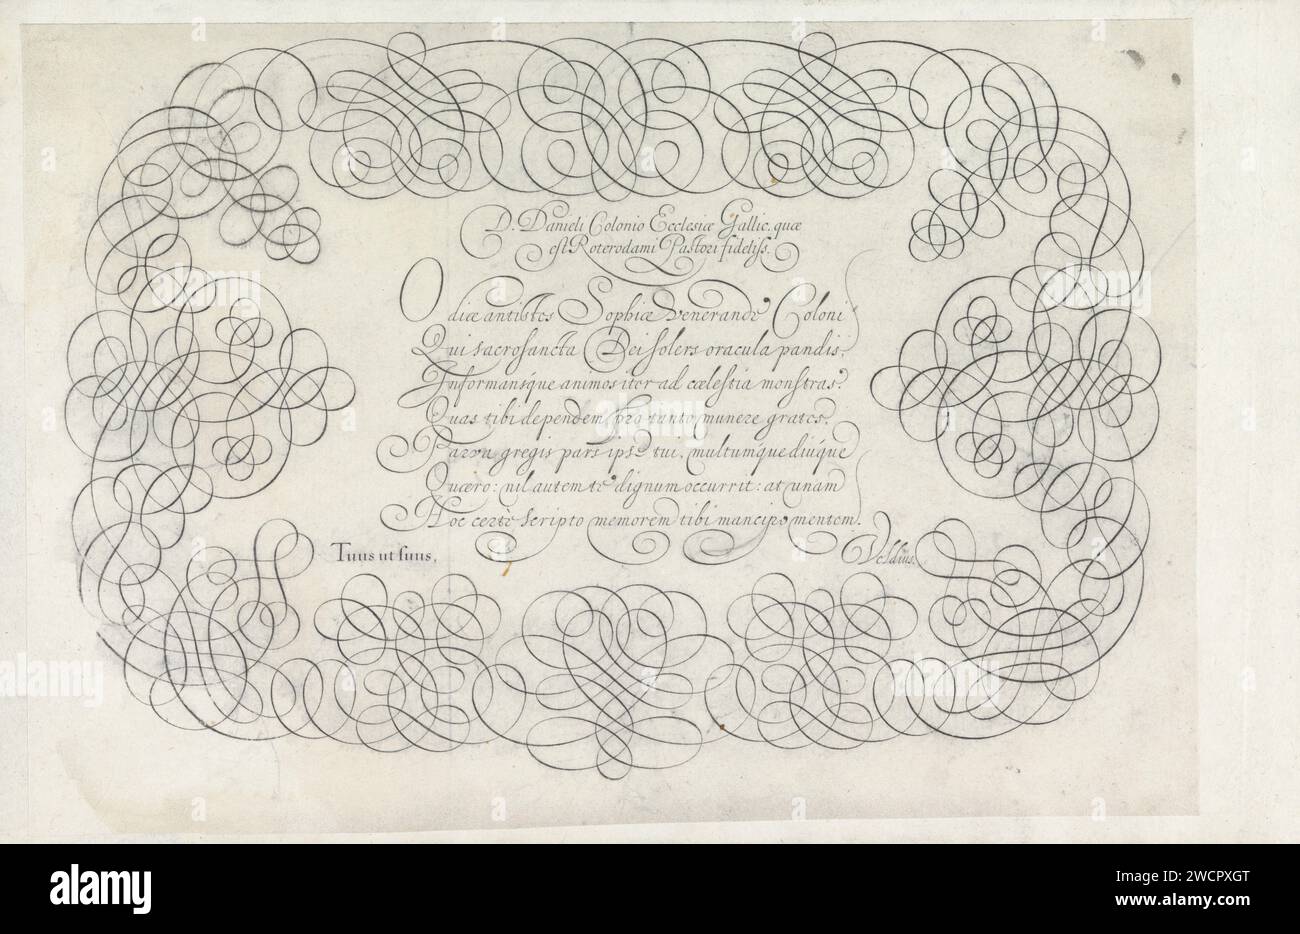 D. Danieli Colonio Ecclesiæ Gallic. quæ
est Roterodami Pastori fideliss.
Odiæ antistes Sophiæ venerande Coloni
Qui sacrosancta Dei solers oracula pandis,
Informansque animos iter ad cœlestia monstras,
Quas tibi dependem pro tanto munere grates,
Parva gregis pars ipse tui, multumque diuque
Quæro: nil autem te dignum occurrit: at unam
Hoc certè scripto memorem tibi mancipo mentem.
Tuus ut suus,
Veldius.
alamy
Image ID: 2WCPXGT
www.alamy.com